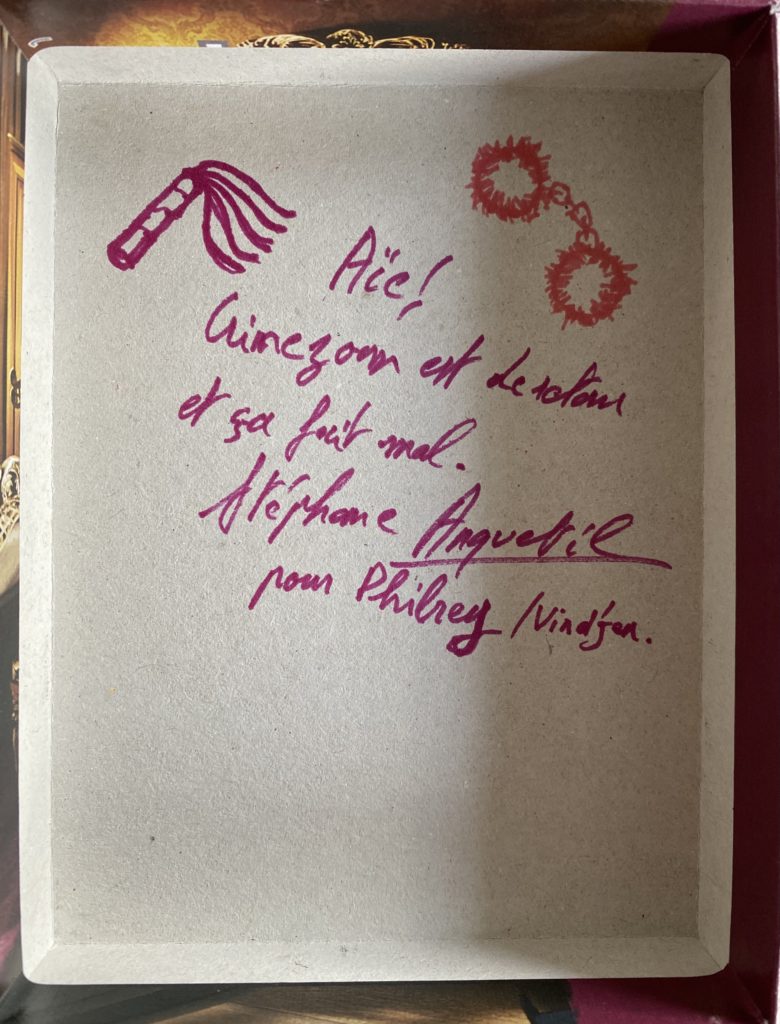 Aïe!
Crimezoom est de retour
et ça fait mal.
Stéphane Anquetil
pour Philrey /Vindjeu.